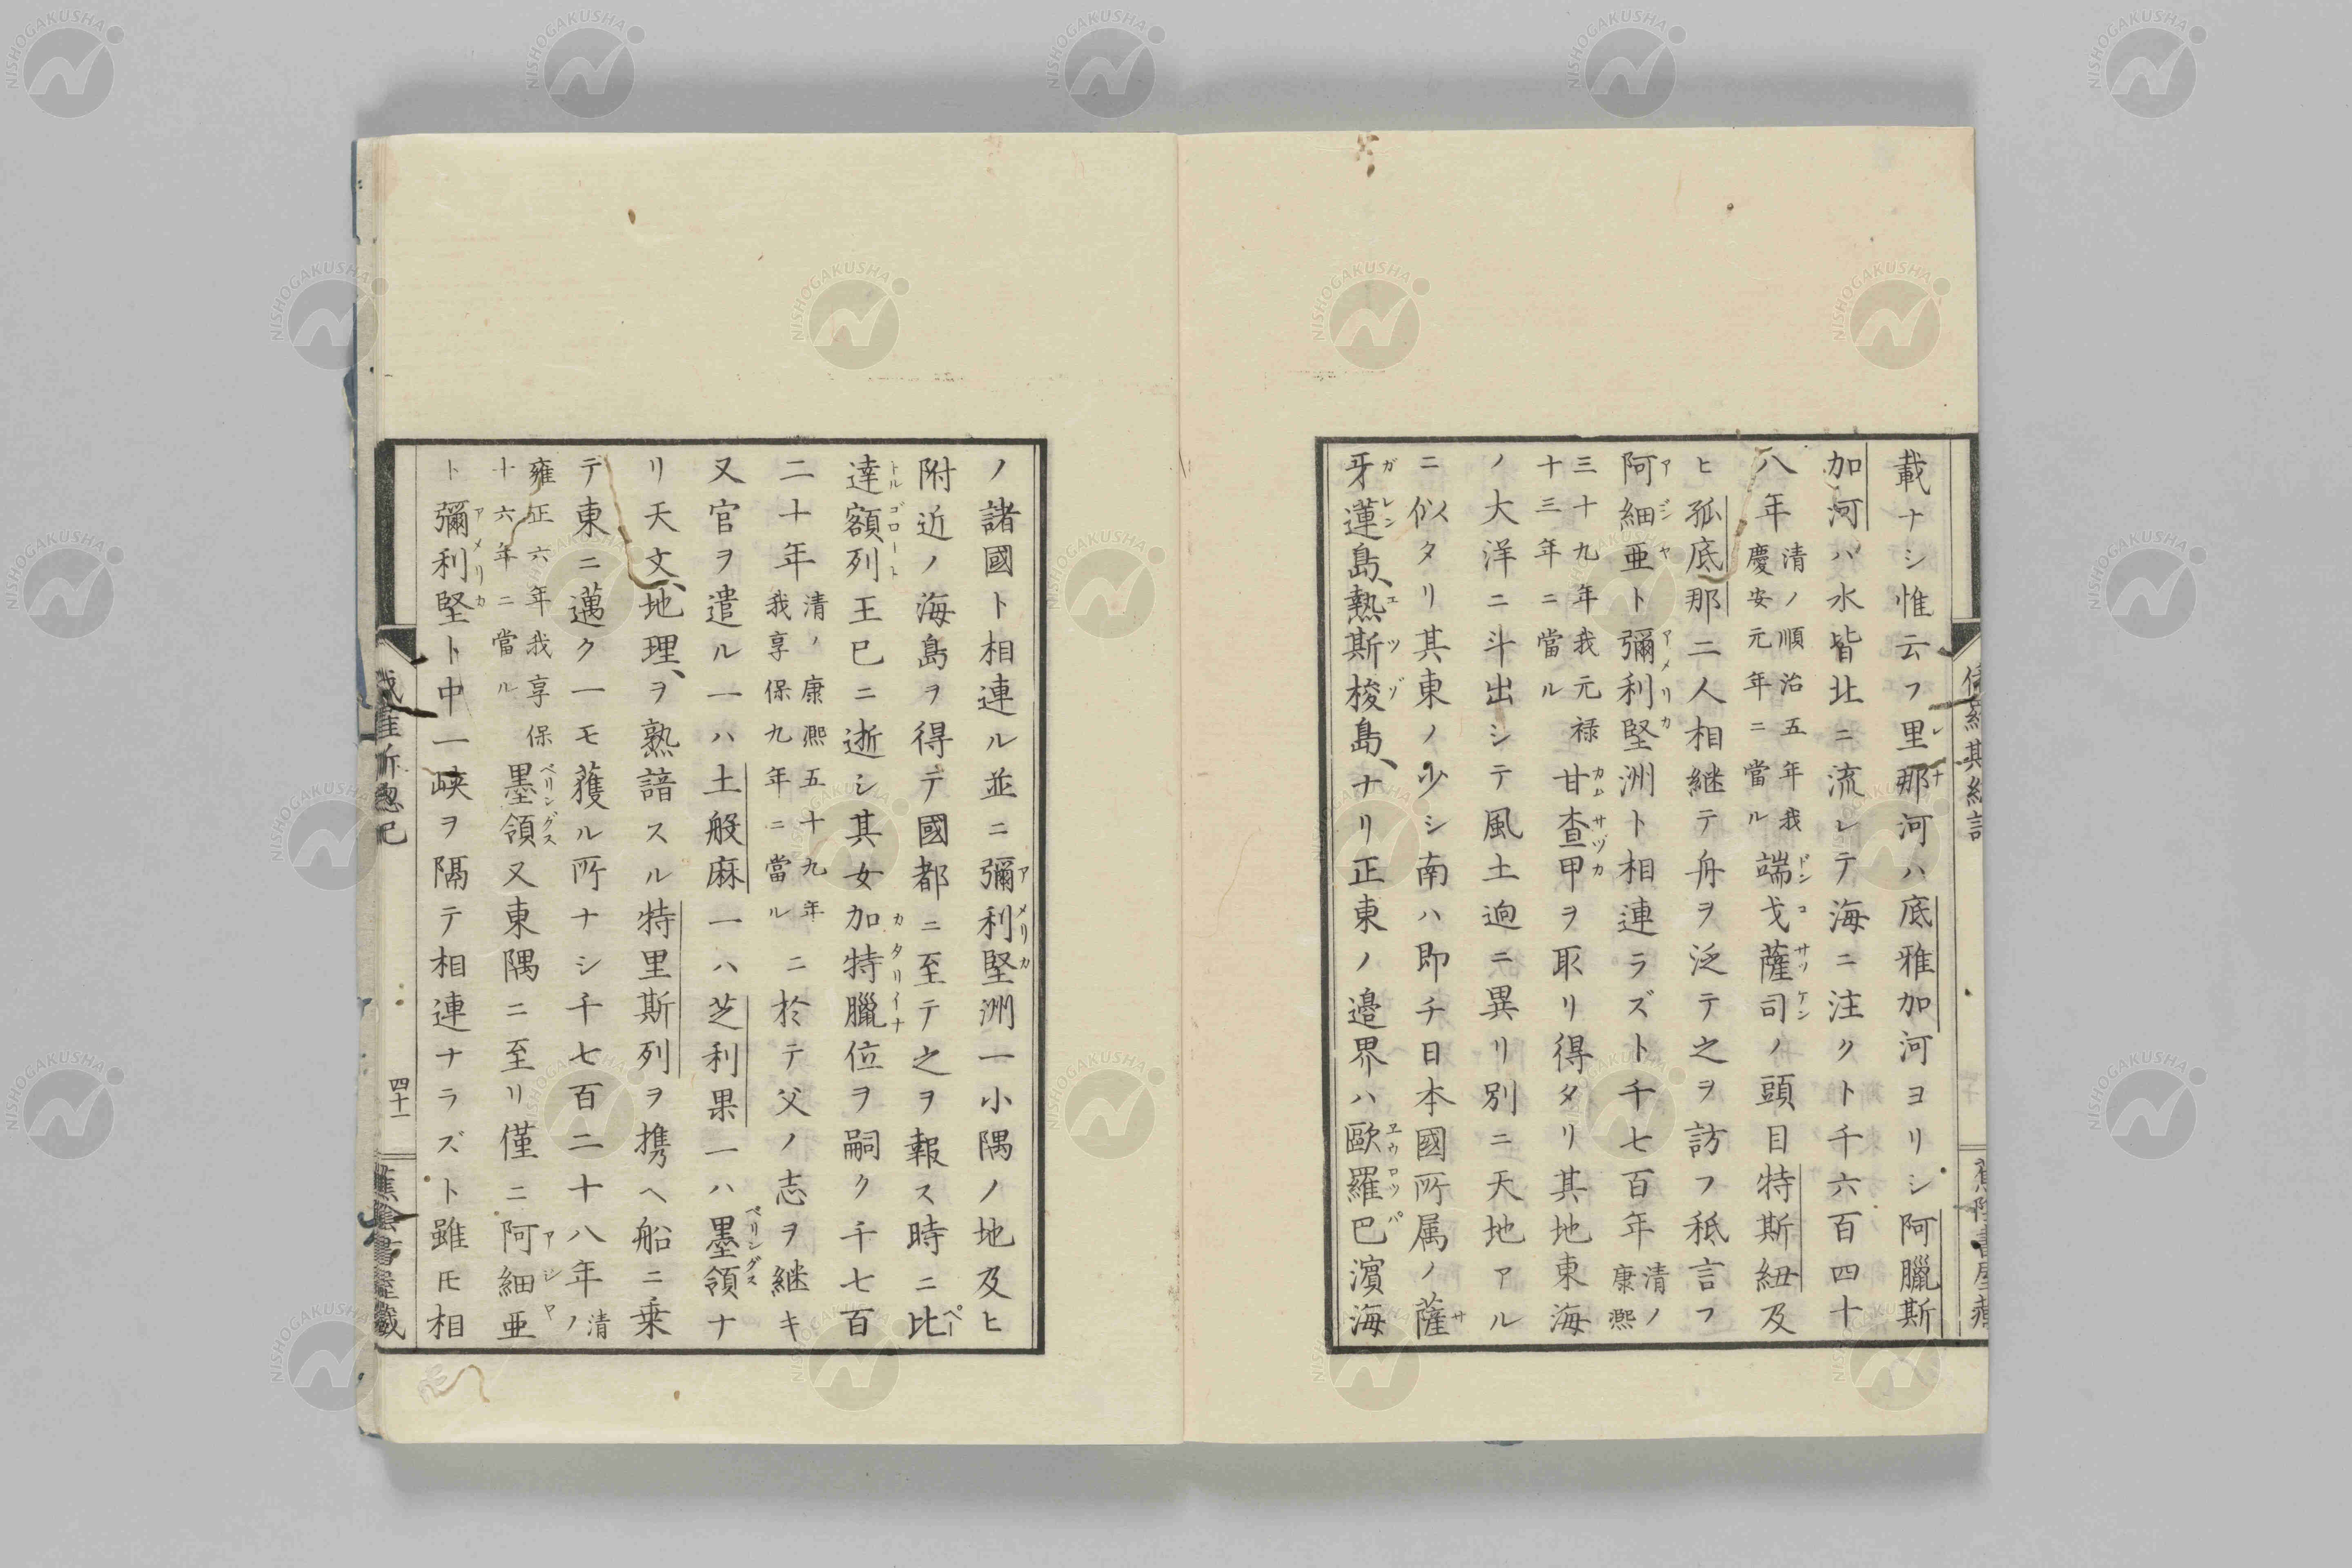 載ナシ惟云フ里那河ハ底雅加河ヨリシ阿臘斯
加河ハ水皆北ニ流レテ海ニ注クト千六百四十
八年清ノ順治五年我慶安元年ニ當ル端戈薩司ノ頭目特斯紐及
ヒ孤底那二人相継テ舟ヲ泛テ之ヲ訪フ秪言フ
阿細亜ト彌利堅洲ト相連ラズト千七百年清ノ康熙
三十九年我元禄十三年ニ當ル甘查甲ヲ取リ得タリ其地東海
ノ大洋ニ斗出シテ風土迥ニ異リ別ニ天地アル
ニ似タリ其東ノ少シ南ハ即チ日本國所属ノ薩
牙蓮島、熱斯梭島、ナリ正東ノ邉界ハ歐羅巴濵海
ノ諸國ト相連ル並ニ彌利堅洲一小隅ノ地及ヒ
附近ノ海島ヲ得テ國都ニ至テ之ヲ報ス時ニ比
達額列王已ニ逝シ其女加特臘位ヲ嗣ク千七百
二十年清ノ康熙五十九年我享保九年ニ當ルニ於テ父ノ志ヲ継キ
又官ヲ遣ル一ハ土般麻一ハ芝利果一ハ墨領ナ
リ天文、地理、ヲ熟諳スル特里斯列ヲ携ヘ船ニ乗
テ東ニ邁ク一モ獲ル所ナシ千七百二十八年清ノ
雍正六年我享保十六年ニ當ル墨領又東隅ニ至リ僅ニ阿細亜
ト彌利堅ト中一峽ヲ隔テ相連ナラズト雖圧相
四十一
NISHOGAKUSHA